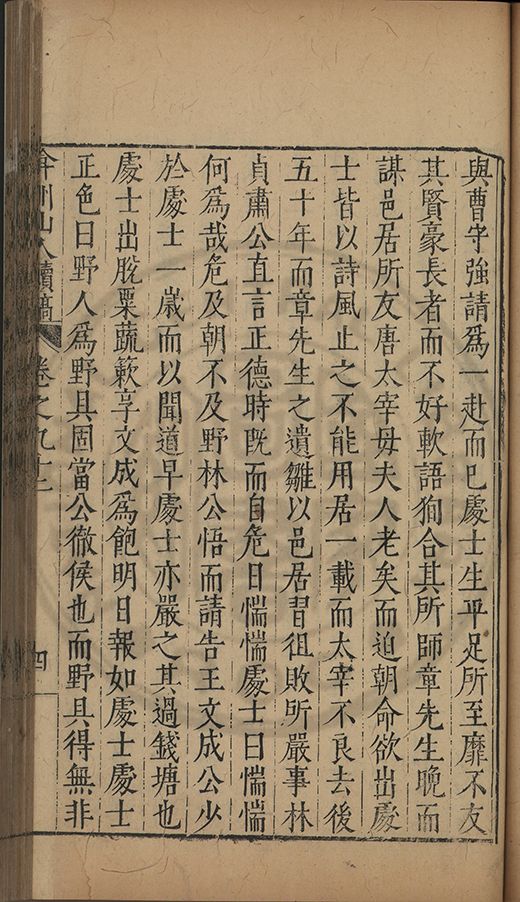 與曹守強請爲一赴而已處士生平足所至靡不友
其賢豪長者而不好軟語狥合其所師章先生晚而
謀邑居所友唐太宰母夫人老矣而迫朝命欲出處
士皆以詩風止之不能用居一載而太宰不良去後
五十年而章先生之遺雛以邑居習徂敗所嚴事林
貞肅公直言正德時旣而自危日惴惴處士曰惴惴
何爲哉危及朝不及野林公悟而請告王文成公少
於處士一歳而以聞道早處士亦嚴之其過錢塘也
處士出脫粟蔬簌享文成爲飽明日報如處士處士
正色曰野人爲野具固當公徹侯也而野具得無非
弇州山人續稿 卷之九十二 四